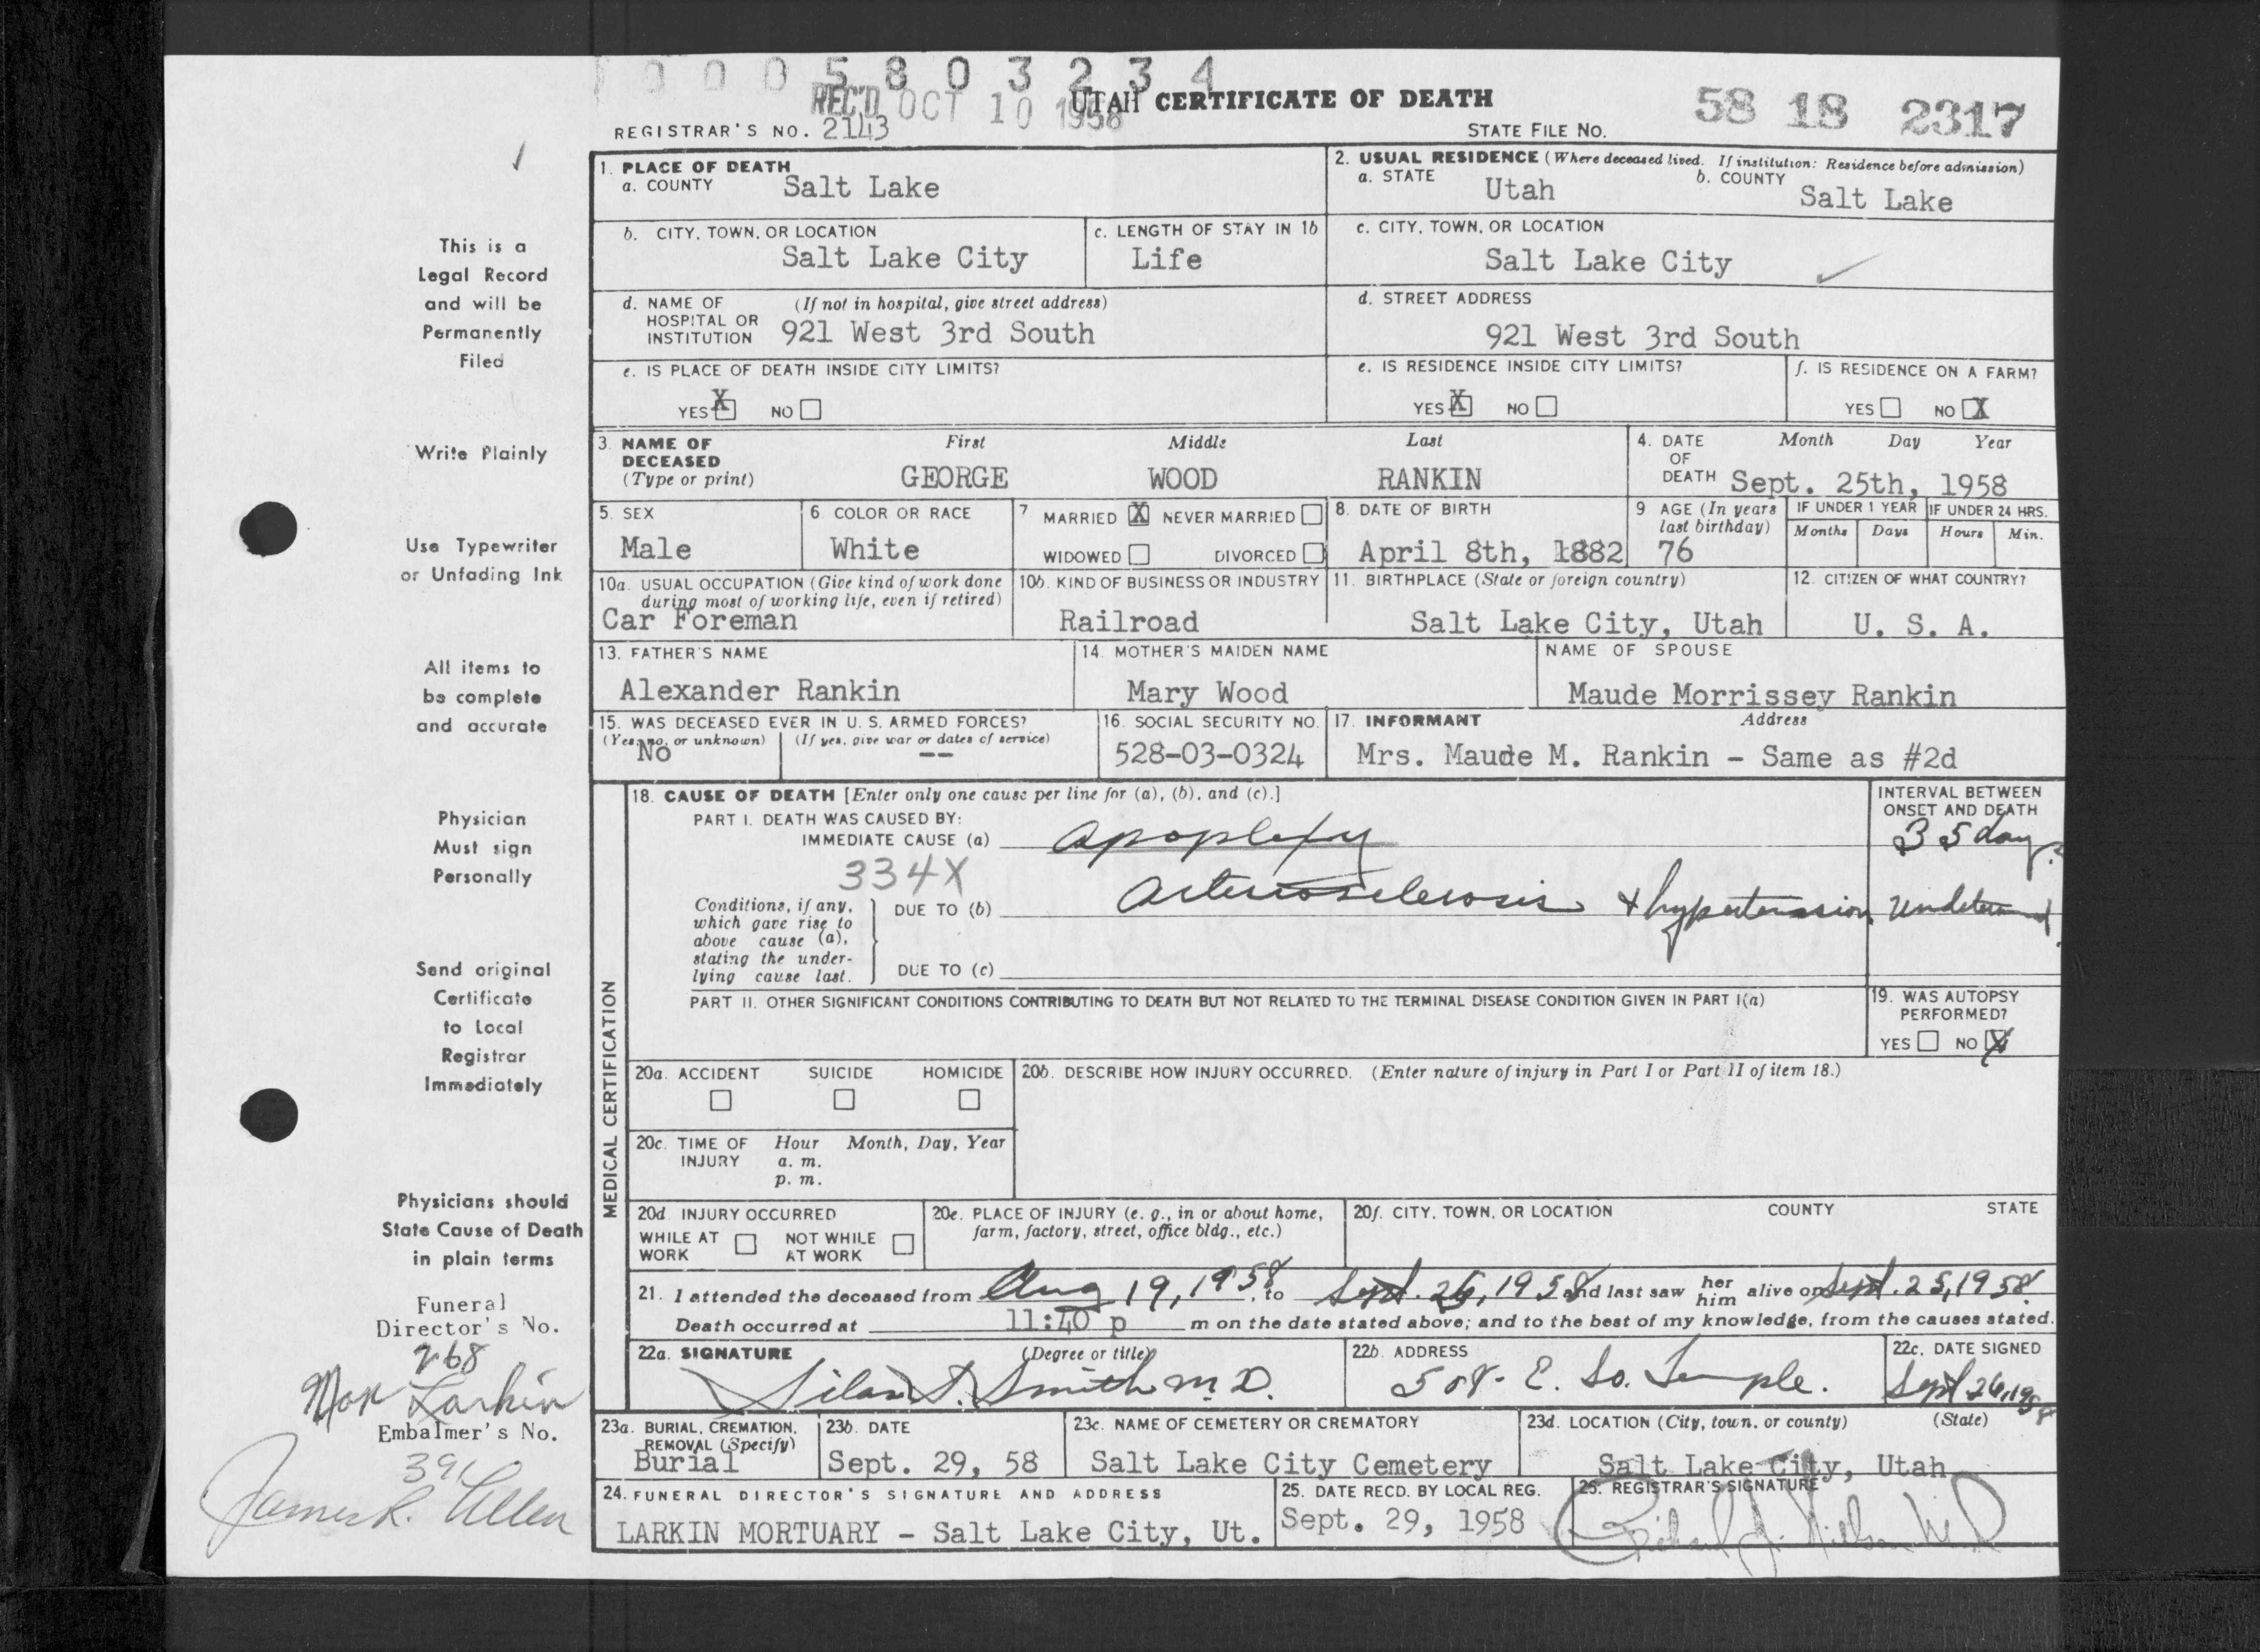 0 0 0 5 8 0 3 2 3 4
REC'D OCT 10 1958
UTAH CERTIFICATE OF DEATH
58 18 2317
REGISTRAR'S NO. 2143
STATE FILE NO.
This is a
Legal Record
and will be
Permanently
Filed
Write Plainly
Use Typewriter
or Unfading Ink
All items to
be complete
and accurate
Physician
Must sign
Personally
Send original
Certificate
to Local
Registrar
Immediately
Physicians should
State Cause of Death
in plain terms
Funeral
Director's No.
268
Max Larkin
Embalmer's No.
391
James R. Allen
1. PLACE OF DEATH
a. COUNTY Salt Lake
2. USUAL RESIDENCE (Where deceased lived. If institution: Residence before admission)
a. STATE Utah b. COUNTY Salt Lake
b. CITY, TOWN, OR LOCATION
Salt Lake City
c. LENGTH OF STAY IN 1b
Life
c. CITY, TOWN, OR LOCATION
Salt Lake City
d. NAME OF (If not in hospital, give street address)
HOSPITAL OR
INSTITUTION 921 West 3rd South
d. STREET ADDRESS
921 West 3rd South
e. IS PLACE OF DEATH INSIDE CITY LIMITS?
YES X NO
e. IS RESIDENCE INSIDE CITY LIMITS?
YES X NO
f. IS RESIDENCE ON A FARM?
YES NO X
3. NAME OF DECEASED (Type or print)
First Middle Last
GEORGE WOOD RANKIN
4. DATE OF DEATH Month Day Year
Sept. 25th, 1958
5. SEX
Male
6. COLOR OR RACE
White
7. MARRIED X NEVER MARRIED
WIDOWED DIVORCED
8. DATE OF BIRTH
April 8th, 1882
9 AGE (In years last birthday)
76
IF UNDER 1 YEAR IF UNDER 24 HRS.
Months Days Hours Min.
10a. USUAL OCCUPATION (Give kind of work done
during most of working life, even if retired)
Car Foreman
10b. KIND OF BUSINESS OR INDUSTRY
Railroad
11. BIRTHPLACE (State or foreign country)
Salt Lake City, Utah
12. CITIZEN OF WHAT COUNTRY?
U. S. A.
13. FATHER'S NAME
Alexander Rankin
14. MOTHER'S MAIDEN NAME
Mary Wood
NAME OF SPOUSE
Maude Morrissey Rankin
15. WAS DECEASED EVER IN U. S. ARMED FORCES?
(Yes, no, or unknown) (If yes, give war or dates of service)
No --
16. SOCIAL SECURITY NO.
528-03-0324
17. INFORMANT Address
Mrs. Maude M. Rankin - Same as #2d
MEDICAL CERTIFICATION
18. CAUSE OF DEATH [Enter only one cause per line for (a), (b), and (c).]
INTERVAL BETWEEN
ONSET AND DEATH
PART I. DEATH WAS CAUSED BY:
IMMEDIATE CAUSE (a) apoplexy 35 days
334X
Conditions, if any,
which gave rise to
above cause (a),
stating the under-
lying cause last.
DUE TO (b) arteriosclerosis + hypertension
DUE TO (c)
PART II. OTHER SIGNIFICANT CONDITIONS CONTRIBUTING TO DEATH BUT NOT RELATED TO THE TERMINAL DISEASE CONDITION GIVEN IN PART I(a)
19. WAS AUTOPSY
PERFORMED?
YES NO X
20a. ACCIDENT SUICIDE HOMICIDE
20b. DESCRIBE HOW INJURY OCCURRED. (Enter nature of injury in Part I or Part II of item 18.)
20c. TIME OF INJURY Hour Month, Day, Year
a. m.
p. m.
20d. INJURY OCCURRED
WHILE AT WORK NOT WHILE AT WORK
20e. PLACE OF INJURY (e. g., in or about home,
farm, factory, street, office bldg., etc.)
20f. CITY, TOWN, OR LOCATION COUNTY STATE
21. I attended the deceased from Aug 19, 1958, to Sept. 25, 1958 and last saw her him alive on Sept. 25, 1958
Death occurred at 11:40 p m on the date stated above; and to the best of my knowledge, from the causes stated.
22a. SIGNATURE (Degree or title)
Silas S. Smith M.D.
22b. ADDRESS
508- E. So. Temple.
22c. DATE SIGNED
Sept 26, 1958
23a. BURIAL, CREMATION,
REMOVAL (Specify)
Burial
23b. DATE
Sept. 29, 58
23c. NAME OF CEMETERY OR CREMATORY
Salt Lake City Cemetery
23d. LOCATION (City, town, or county) (State)
Salt Lake City, Utah
24. FUNERAL DIRECTOR'S SIGNATURE AND ADDRESS
LARKIN MORTUARY - Salt Lake City, Ut.
25. DATE RECD. BY LOCAL REG.
Sept. 29, 1958
25. REGISTRAR'S SIGNATURE